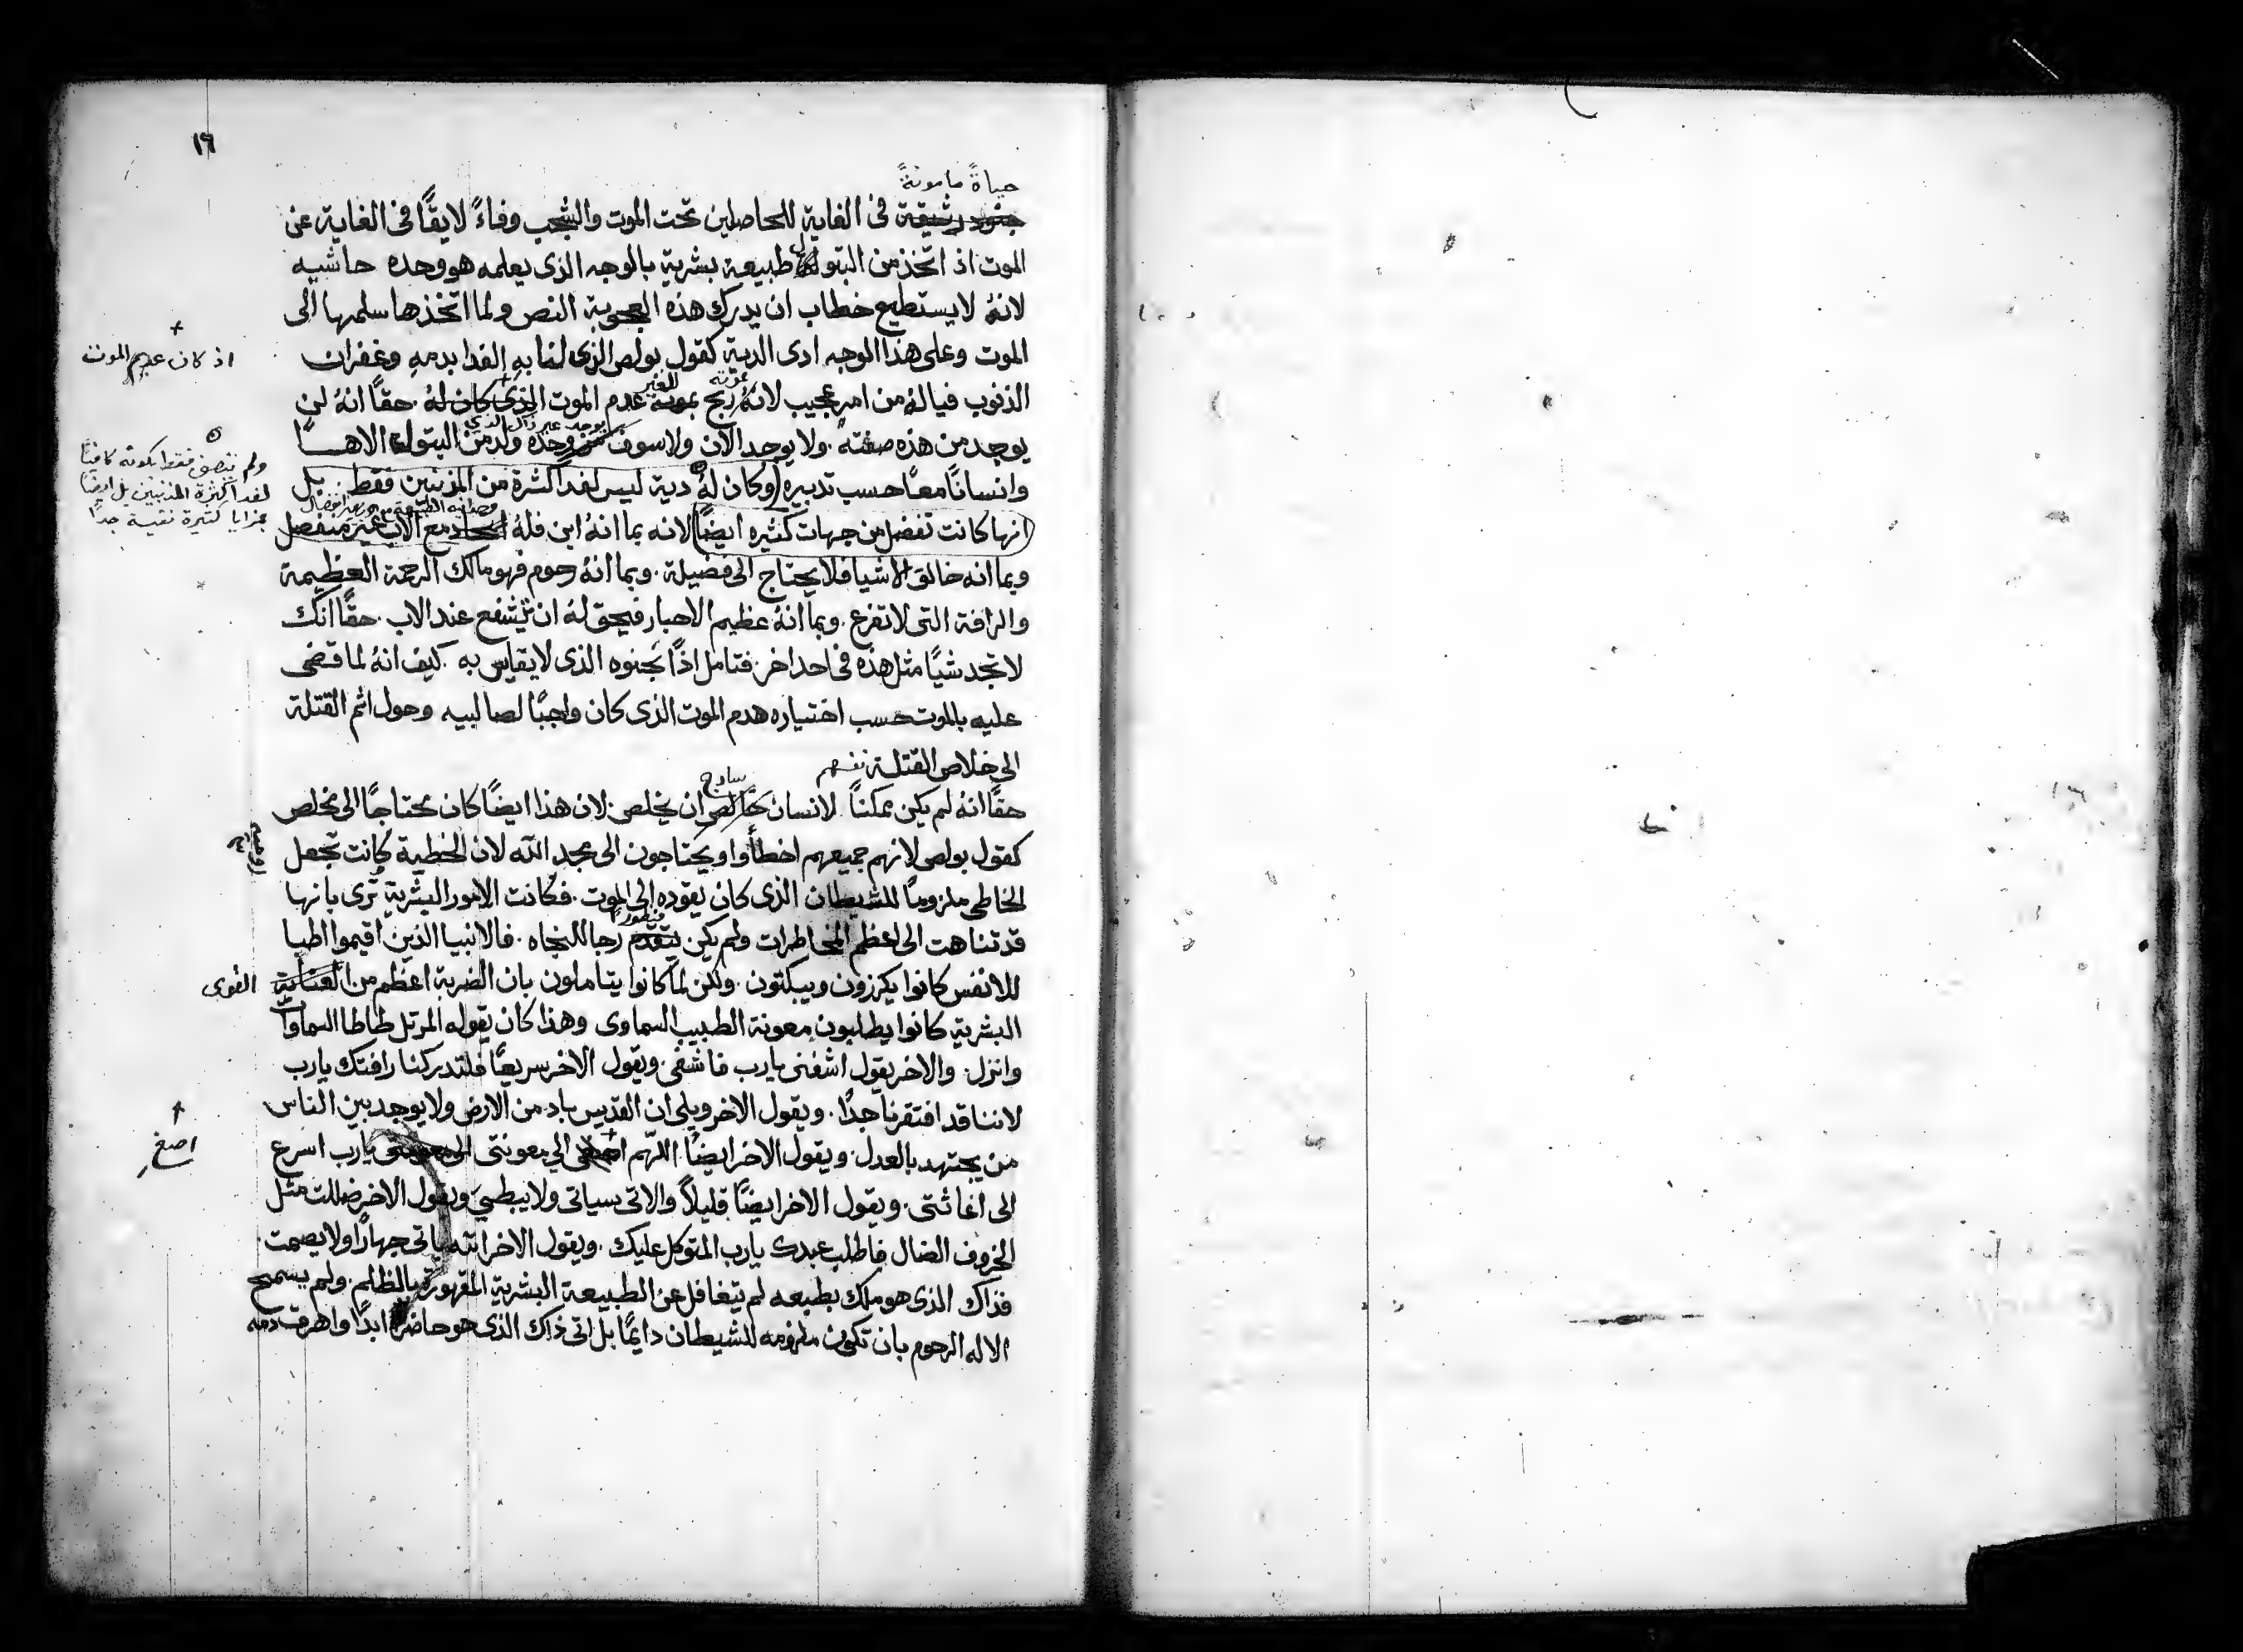 ١٦
حياةً مامونةً
في الغاية للحاصلين تحت الموت والشجب وفاءً لايقًا في الغاية عن
الموت اذ اتخذ من البتول طبيعة بشرية بالوجه الذى يعلمه هو وحده حاشيه
لانهُ لا يستطيع خطاب ان يدرك هذه العجوبة النص ولما اتخذها سلمها الى
الموت وعلى هذا الوجه ادى الدية كقول بولص الذى لنا به الفدا بدمه وغفران
اذ كان عديم الموت
بموته للغير
الذنوب فيالهُ من امر عجيب لانهُ ربح عدم الموت الذى كان لهُ. حقًا انهُ لن
يوجد غير ذاك الذي
يوجد من هذه صفته. ولا يوجد الان ولا سوف ولد من البتول الاهـــا
ولم يتصف فقط بكونه كافيًا
لفدا كثرة المذنبين بل ايضًا
بمزايا كثيرة نفيسة جدًا
وانسانًا معًا حسب تدبيره وكان لهُ دية ليس لفدا كثرة من المذنبين فقط. بل
انها كانت تفضل من جهات كثيره ايضًا لانه بما انهُ ابن فلهُ اتحاد مع الاب غير منفصل
وبما انه خالق الاشيا فلا يحتاج الى فضيلة. وبما انهُ رحوم فهو مالك الرحمة العظيمة
والرافة التى لا تفرغ. وبما انهُ عظيم الاحبار فيحق لهُ ان يتشفع عند الاب. حقًا انك
لا تجد شيًا مثل هذه في احد اخر. فتامل اذًا بحنوه الذى لا يقاس به. كيف انهُ لما قضى
عليه بالموت حسب اختياره هدم الموت الذى كان واجبًا لصالبيه وحول اثم القتلة
الى خلاص القتلة نفسهم
ساذج
حقًا انهُ لم يكن ممكنًا لانسان ان يخلص. لان هذا ايضًا كان محتاجًا الى مخلص
كقول بولص لانهم جميعهم اخطأوا ويحتاجون الى مجد الله لان الخطية كانت تجعل
الخاطى ملزومًا للشيطان الذى كان يقوده الى الموت. فكانت الامور البشرية تُرى بانها
قد تناهت الى اعظم المخاطرات ولم يكن يتقدم رجا للنجاه. فالانبيا الذين اقيموا اطبا
للانفس كانوا يكرزون ويبكتون. ولكن لما كانوا يتاملون بان الضربة اعظم من العناية
القوى
البشرية كانوا يطلبون معونة الطبيب السماوى وهذا كان يقوله المرتل طاطا السماوات
وانزل. والاخر يقول اشفنى يارب فاشفى. ويقول الاخر سريعًا فلتدركنا رافتك يارب
لاننا قد افتقرنا جدًا. ويقول الاخر ويلى ان القديس باد من الارض ولا يوجد بين الناس
اصغ
من يجتهد بالعدل. ويقول الاخر ايضًا اللهم الى معونتى يارب اسرع
الى اغاثتى. ويقول الاخر ايضًا قليلاً والاتى سياتى ولا يبطي ويقول الاخر ضللت مثل
الخروف الضال فاطلب عبدك يارب المتوكل عليك. ويقول الاخر انه ياتى جهارًا ولا يصمت.
فذاك الذى هو ملك بطبعه لم يتغافل عن الطبيعة البشرية المقهورة بالظلم. ولم يسمح
الاله الرحوم بان تكون ملزومه للشيطان دايمًا بل اتى ذاك الذى هو حاضرًا ابدًا واهرق دمه